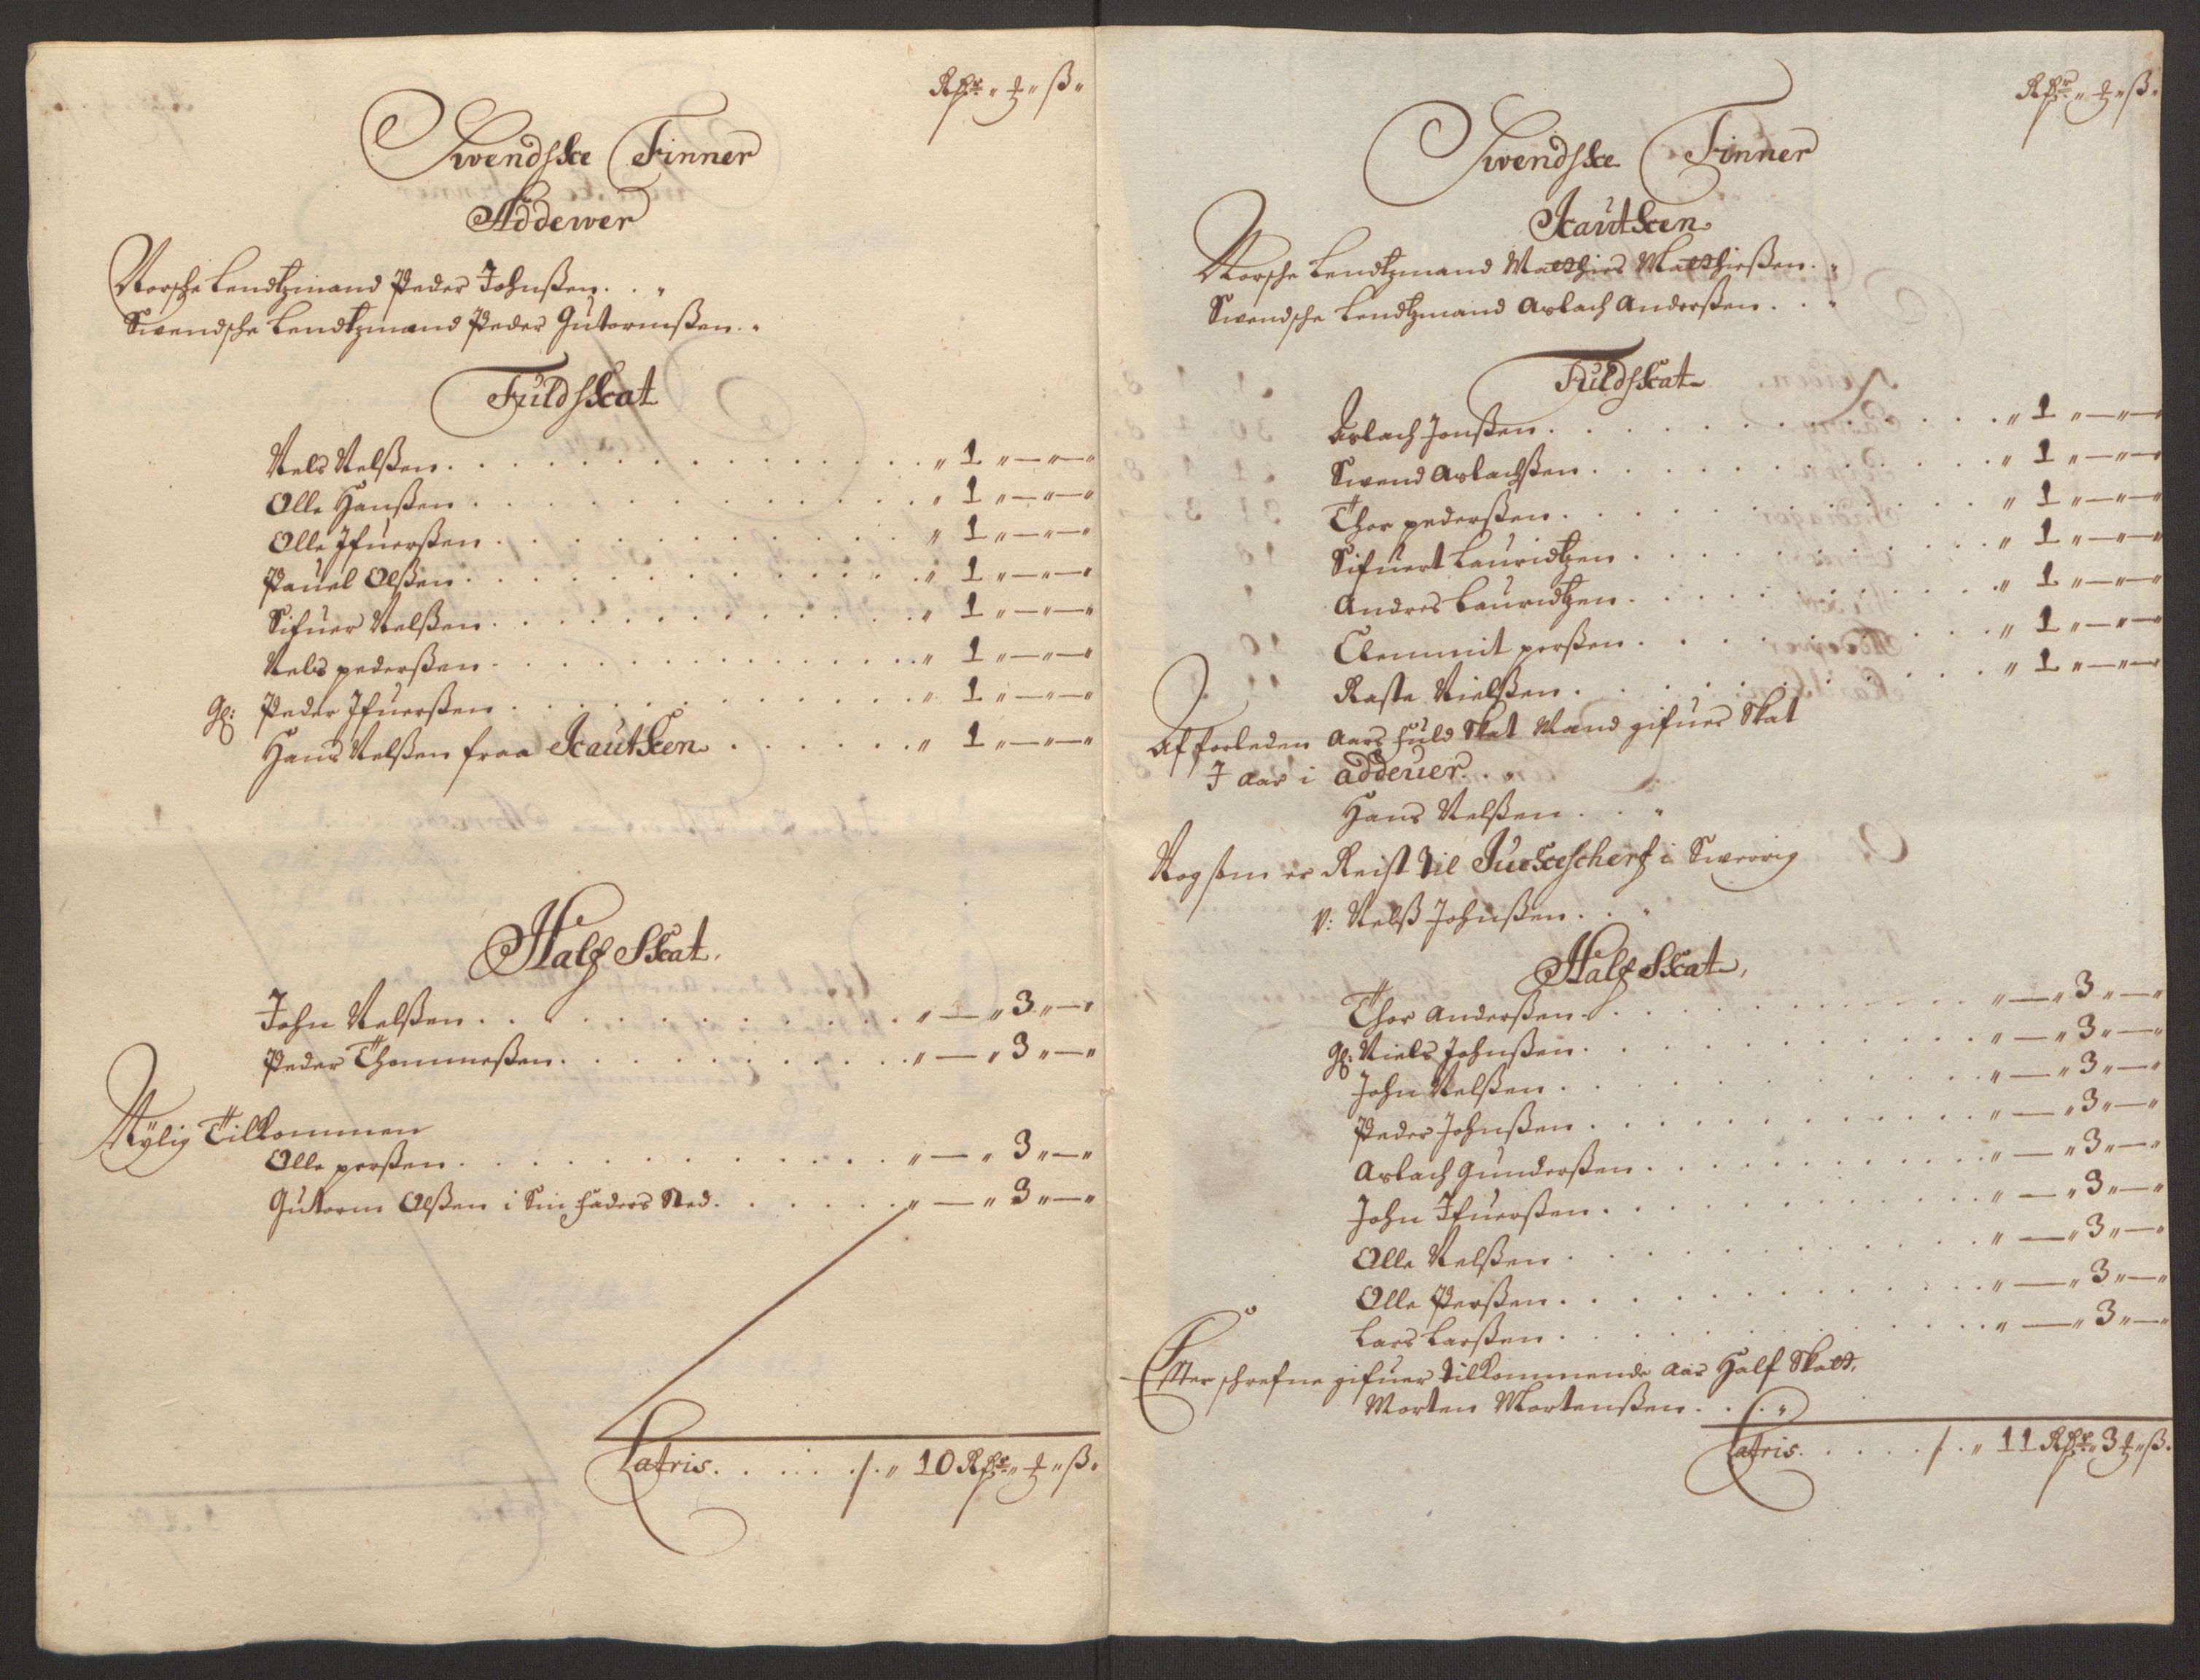 Rdr " ℔ " ß "
Swendske Finner
Addewer
Norsche Lendtzmand Peder Johnßen . . "
Swendsche Lendtzmand Peder Gutormßen . "
Fuldskat
Nels Nelßen . . . " 1 " — " — "
Olle Hanßen . . . " 1 " — " — "
Olle Ifuerßen . . . " 1 " — " — "
Pauel Olßen . . . " 1 " — " — "
Sifuer Nelßen . . . " 1 " — " — "
Nels pederßen . . . " 1 " — " — "
Gl: Peder Ifuerßen . . . " 1 " — " — "
Hans Nelßen fraa Kautken . . . " 1 " — " — "
Half Skat.
John Nelßen . . . " — " 3 " — "
Peder Thommeßen . . . " — " 3 " — "
Nylig Tilkommen
Olle perßen . . . " — " 3 " — "
Gutorm Olßen i Sin faders Sted . . . " — " 3 " — "
Latris . . . /. " 10 Rdr " ℔ " ß "
Rdr " ℔ " ß "
Swendske Finner
Kautken
Norsche Lendtzmand Matthies Matthießen . "
Swendsche Lendtzmand Aslach Anderßen . . "
Fuldskat
Aslach Jonßen . . . " 1 " — " — "
Swend Aslachßen . . . " 1 " — " — "
Thor pederßen . . . " 1 " — " — "
Sifuert Lauridtzen . . . " 1 " — " — "
Andres Lauridtzen . . . " 1 " — " — "
Clemmit perßen . . . " 1 " — " — "
Raste Nielßen . . . " 1 " — " — "
Af forleden Aars fuld Skat Mand gifuer Skat
I Aar i addeuer . . "
Hans Nelßen . . "
Nog som er Reist til Juckescherf i Swerrig
V: Nelß Johnßen . . "
Half Skat.
Thor Anderßen . . . " — " 3 " — "
Gl: Niels Johnßen . . . " — " 3 " — "
John Nelßen . . . " — " 3 " — "
Peder Johnßen . . . " — " 3 " — "
Aslach Gunderßen . . . " — " 3 " — "
John Ifuerßen . . . " — " 3 " — "
Olle Nelßen . . . " — " 3 " — "
Olle Perßen . . . " — " 3 " — "
Lars Larßen . . . " — " 3 " — "
Efterschrefne gifuer tilkommende Aar Half Skatt.
Morten Mortenßen . . . "
Latris . . . /. " 11 Rdr " 3 ℔ " ß "